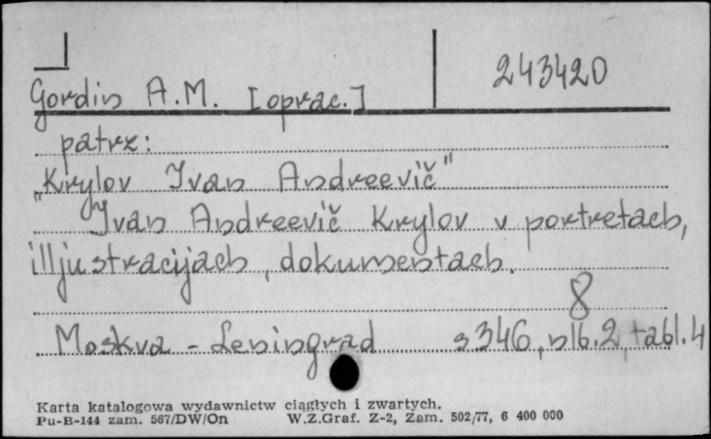 243420
Gordin A.M. [oprac.]
patrz:
"Krylov Ivan Andreevič"
Ivan Andreevič Krylov v portretach,
illjustracijach, dokumentach.
8
Moskva - Leningrad s 346, nlb. 2, tabl. 4
Karta katalogowa wydawnictw ciągłych i zwartych.
Pu-B-144 zam. 567/DW/On W.Z.Graf. Z-2, Zam. 502/77, 6 400 000